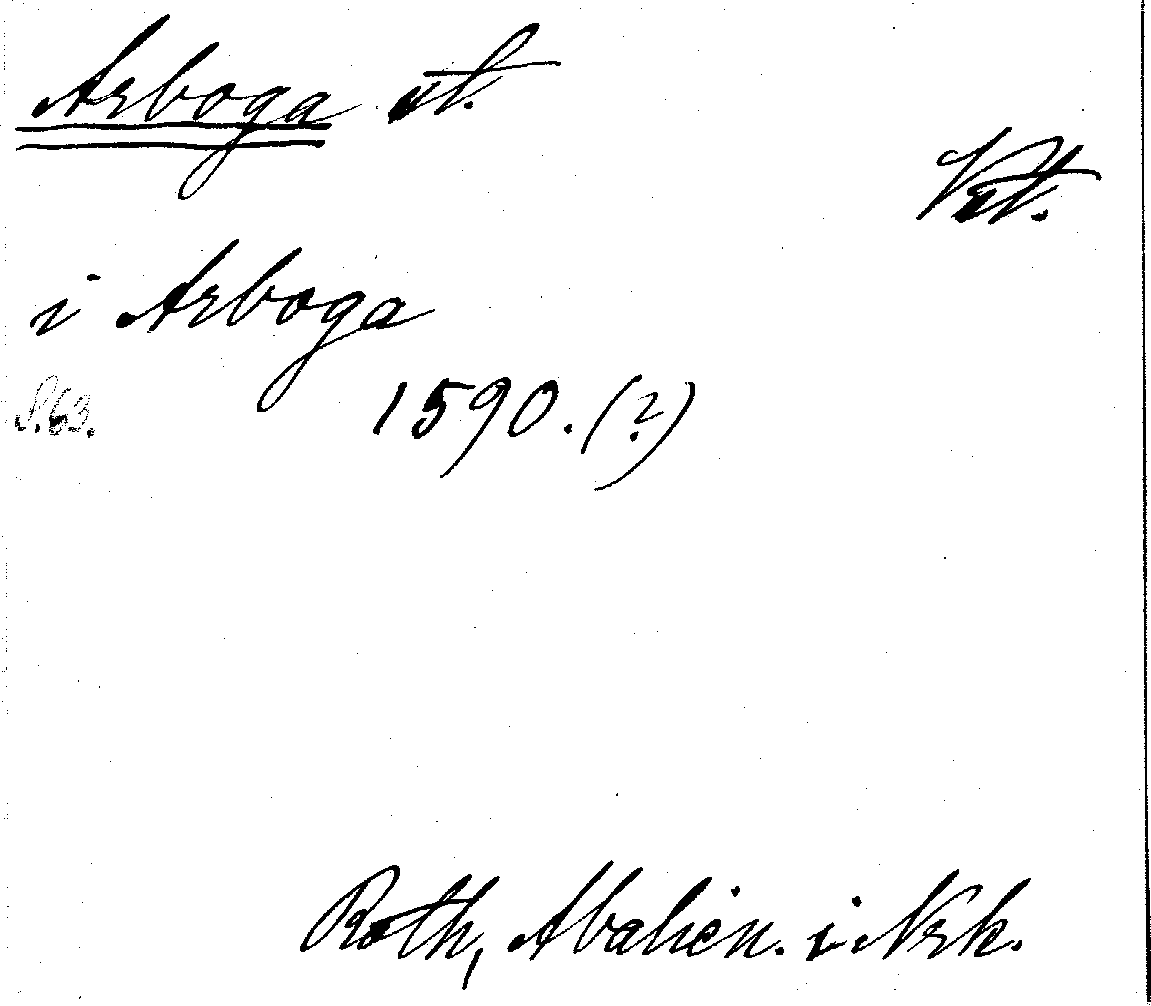 Arboga st.
Vstm.
i Arboga
S. 63.
1590. (?)
Roth, Abalien. i Nrk.